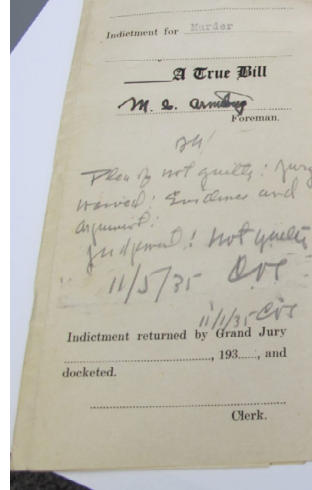 Indictment for Murder
A True Bill
M. L. Armstrong
Foreman.
Plea of not guilty: Jury
waived: Evidence and
argument:
judgement: not guilty
11/5/35
11/1/35
Indictment returned by Grand Jury
..............................., 193......, and
docketed.
............................................
Clerk.